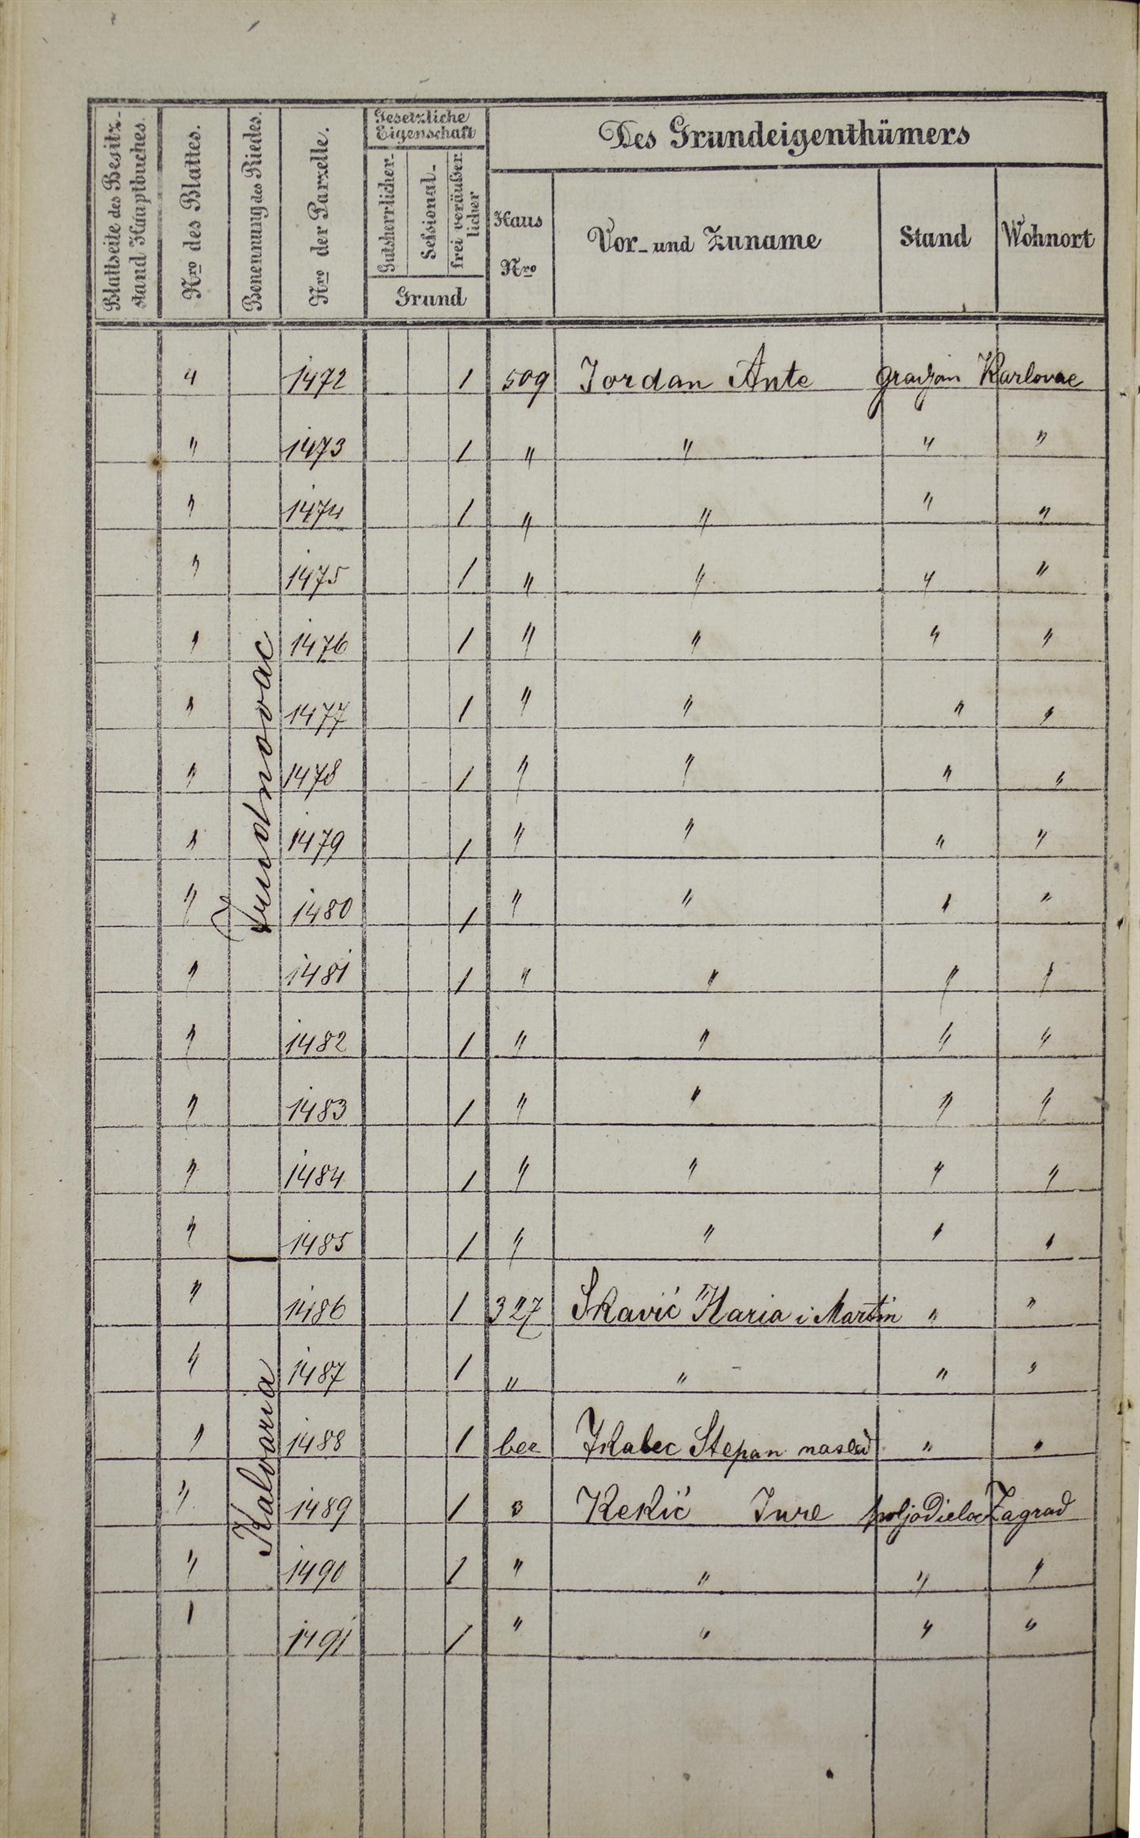 Blattseite des Besitz-stand Hauptbuches.
Nro des Blattes.
Benennung des Riedes.
Nro der Parzelle.
Gesetzliche Eigenschaft
Gutsherrlicher.
Sessional-
frei veräußerlicher
Grund
Des Grundeigenthümers
Haus Nro
Vor- und Zuname
Stand
Wohnort
4 1472 1 509 Jordan Ante gradjan Karlovac
" 1473 1 " " " "
" 1474 1 " " " "
" 1475 1 " " " "
" 1476 1 " " " "
" 1477 1 " " " "
" 1478 1 " " " "
" 1479 1 " " " "
" 1480 1 " " " "
" 1481 1 " " " "
" 1482 1 " " " "
" 1483 1 " " " "
" 1484 1 " " " "
" 1485 1 " " " "
" 1486 1 327 Skavić Maria i Martin " "
" 1487 1 " " " "
Kalvaria
" 1488 1 bez Stepan naslid " "
" 1489 1 3 Kekić Jure poljodielac Zagrad
" 1490 1 " " " "
" 1491 1 " " " "